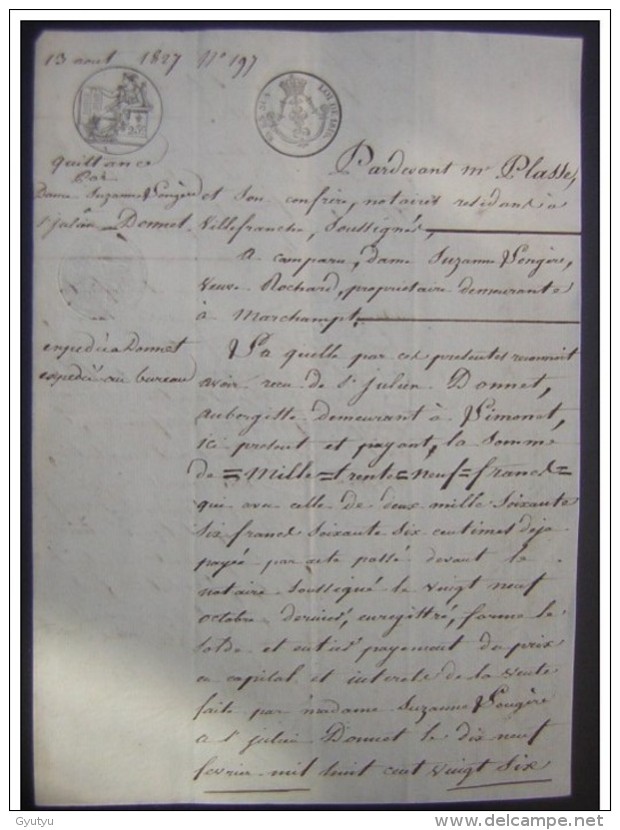 13 aout 1827 N° 197
quittance
Par
Dame Suzanne Sougère
à
st julien Donnet
expédié a Donnet
expédié au bureau
Pardevant mr Plasse,
et son confrère, notaires résidans à
Villefranche, soussignés,
a comparu, dame Suzanne Sougère,
veuve Rochard, propriétaire demeurante
à Marchampt,
Laquelle par ces presentes reconnoit
avoir recu de st julien Donnet,
aubergiste demeurant à Simonet,
ici present et payant, la somme
de = Mille = trente = neuf = francs =
qui avec celle de deux mille soixante
six francs soixante six centimes déja
payée par acte passé devant le
notaire soussigné le vingt neuf
octobre dernier, enregistré, forme le
solde et entier payement du prix
en capital et interets de la vente
faite par madame Suzanne Sougère
a st julien Donnet le dix neuf
fevrier mil huit cent vingt six
Gyutyu
delcampe.net